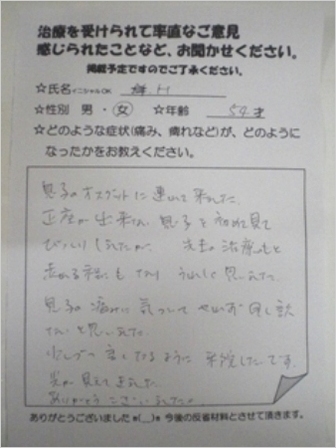 治療を受けられて率直なご意見
感じられたことなど、お聞かせください。
掲載予定ですのでご了承ください。
☆氏名 イニシャルOK H
☆性別 男・女 ☆年齢 54才
☆どのような症状(痛み、痺れなど)が、どのように
なったかをお教えください。
息子のオスグットに連いて来ました。
正座が出来ない息子を初めて見て
びっくりしましたが、先生の治療のもと
うれしく思いました
息子の痛みに気づいて
と思いました。
少しづつ良くなるように来院したいです。
光が見えてきました。
ありがとうございました。
ありがとうございましたm(__)m 今後の反省材料とさせて頂きます。